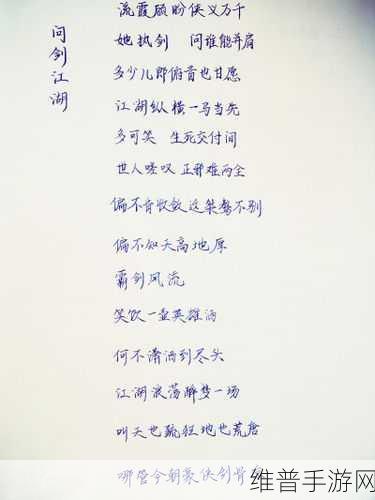 问剑江湖
流霞顾盼侠义万千
她执剑 问谁能并肩
多少儿郎俯首也甘愿
江湖纵横一马当先
多可笑 生死交付间
世人嗟叹 正邪难两全
偏不肯收敛这桀骜不驯
偏不知天高地厚
霸剑风流
笑饮一壶英雄酒
何不潇洒到尽头
江湖浪荡醉梦一场
叫天也疏狂地也荒唐
哪管今朝豪侠剑骨
维普手游网